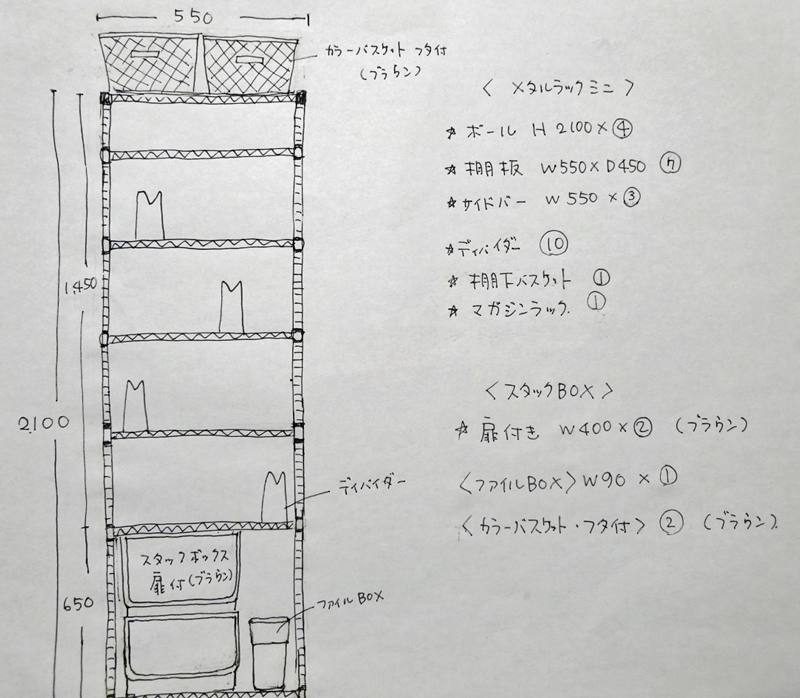 550
カラーバスケット フタ付
(ブラウン)
〈メタルラックミニ〉
☆ ポール H 2100×④
☆ 棚板 W550×D450 ⑦
☆ サイドバー W550×③
☆ ディバイダー ⑩
☆ 棚下バスケット ①
☆ マガジンラック ①
1450
2100
〈スタックBOX〉
☆ 扉付き W400×② (ブラウン)
〈ファイルBOX〉W90 × ①
〈カラーバスケット・フタ付〉 ② (ブラウン)
ディバイダー
スタックボックス
扉付(ブラウン)
650
ファイルBOX